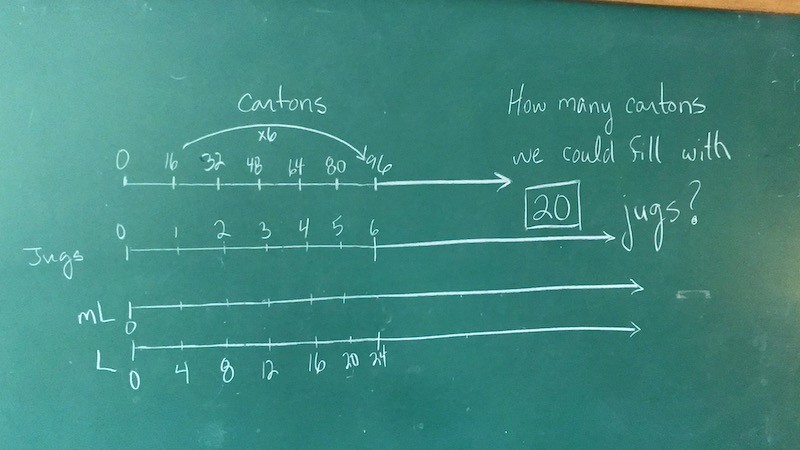 Cartons
x6
0 16 32 48 64 80 96
Jugs
0 1 2 3 4 5 6
mL
0
L
0 4 8 12 16 20 24
How many cartons
we could fill with
20 jugs?